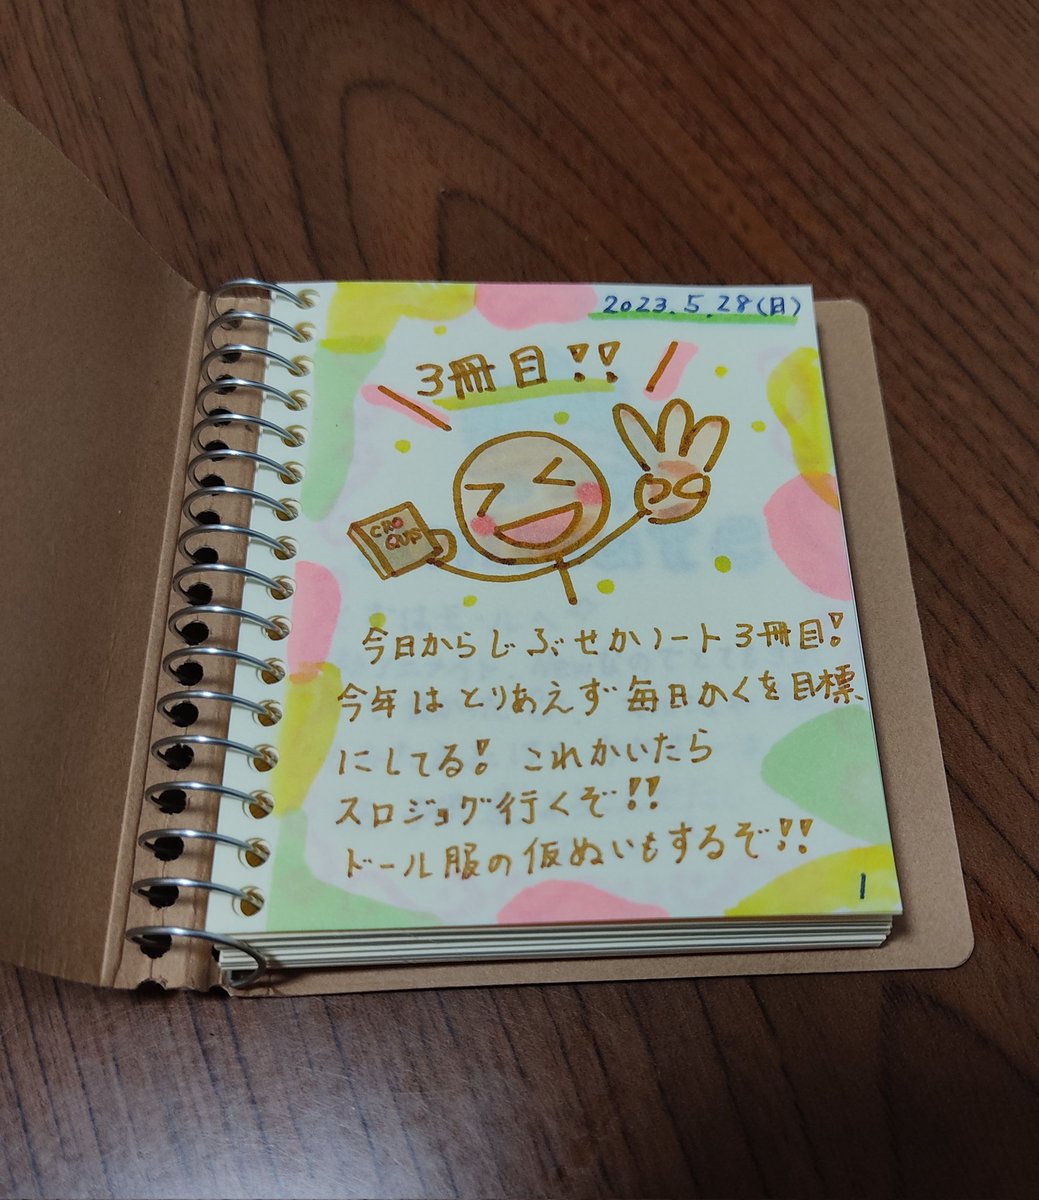 2023.5.28(日)
3冊目!!
CRO
QUP
今日からじぶせかノート3冊目!
今年はとりあえず毎日かくを目標
にしてる! これかいたら
スロジョグ行くぞ!!
ドール服の仮ぬいもするぞ!!
1